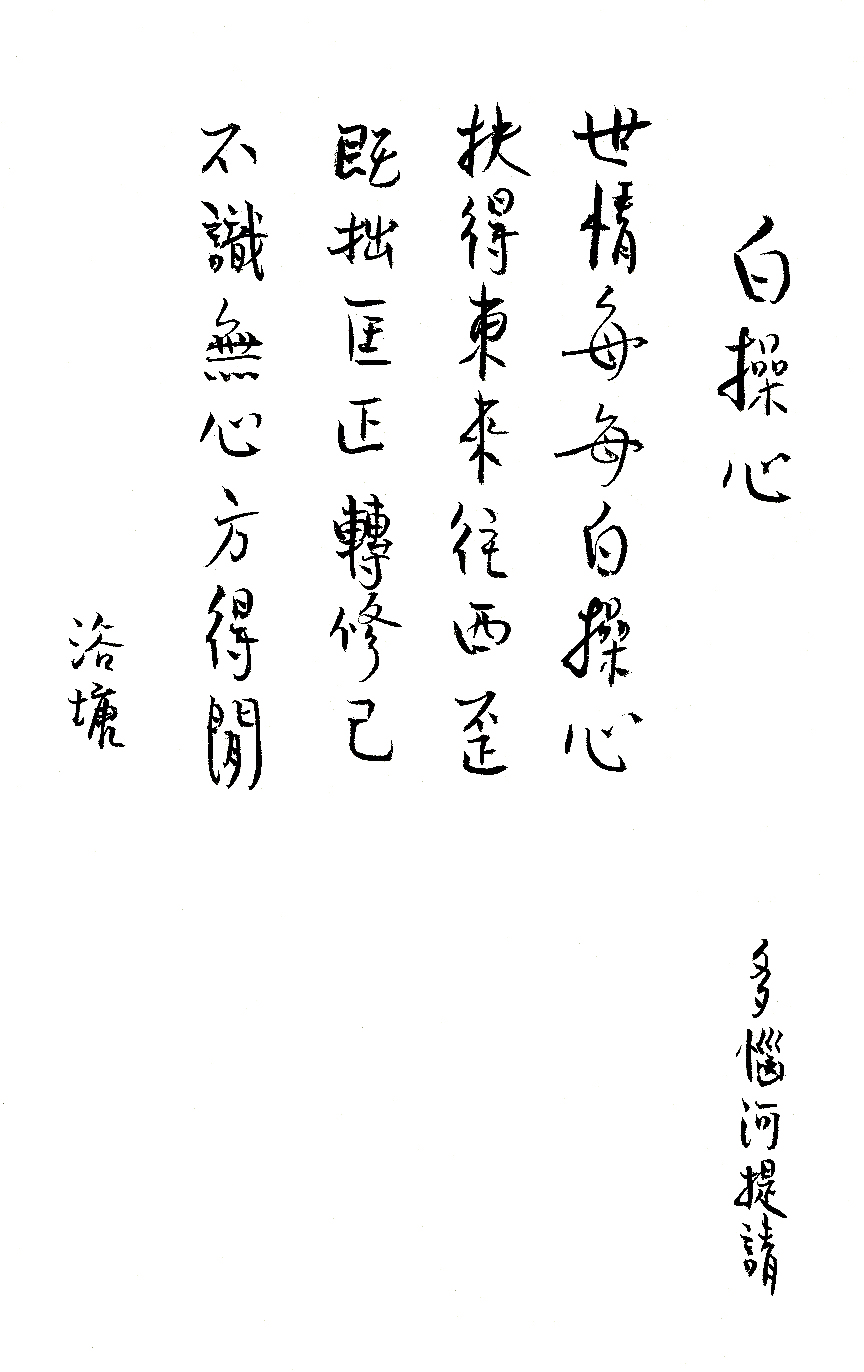 白操心
多惱河提請
世情每每白操心
扶得東來往西歪
既拙匡正轉修己
不識無心方得閒
浴塘